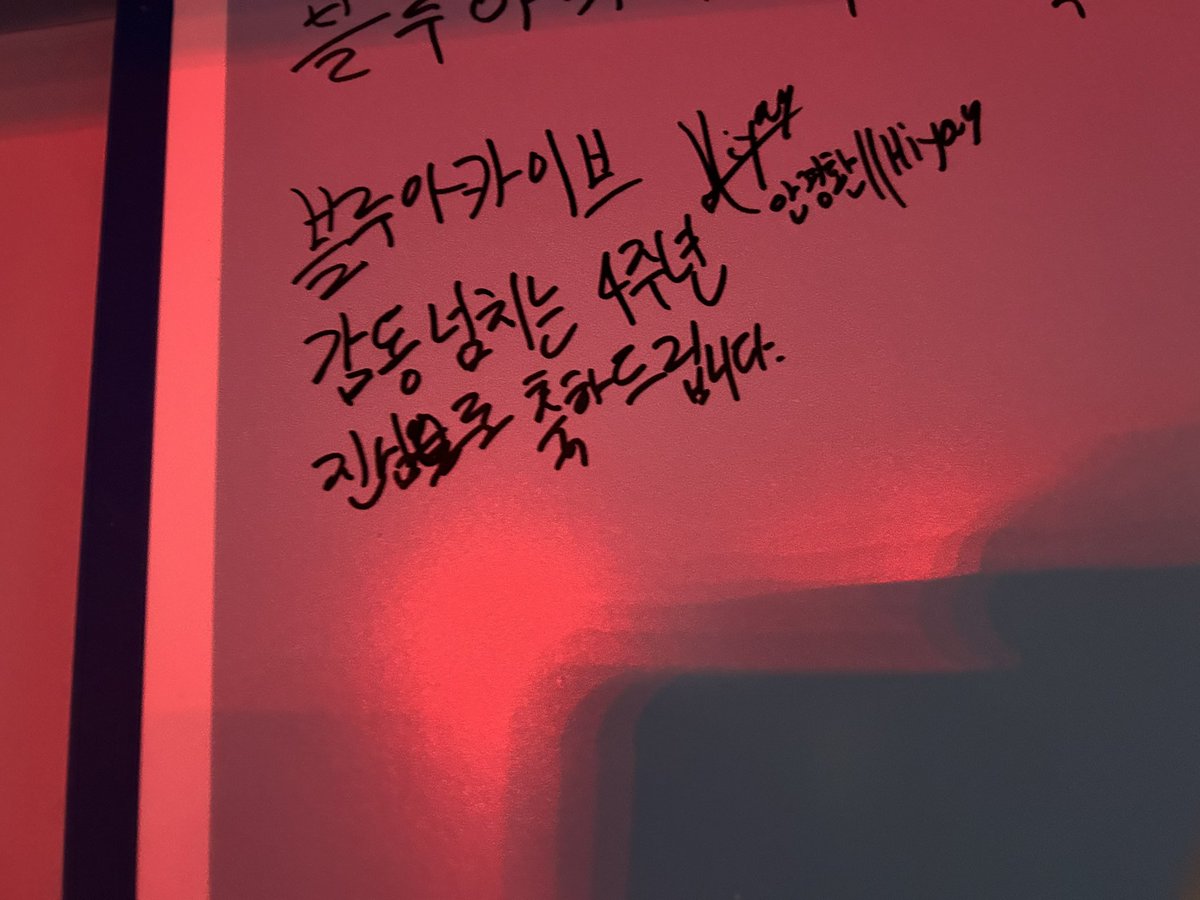 블루아카이브 Hiyay
안경환||Hiyay
감동 넘치는 4주년
진심으로 축하드립니다.